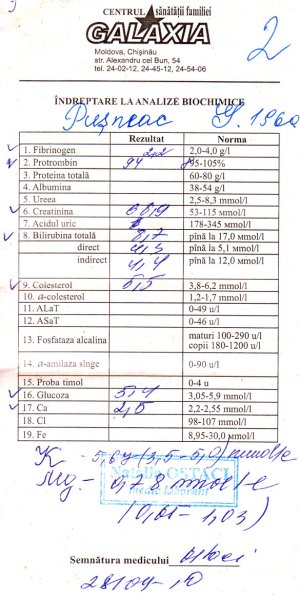 CENTRUL sănătății familiei
GALAXIA
Moldova, Chișinău
str. Alexandru cel Bun, 54
tel. 24-02-12, 24-45-12, 24-54-06
2
ÎNDREPTARE LA ANALIZE BIOCHIMICE
Rezultat Norma
1. Fibrinogen 2,2 2,0-4,0 g/l
2. Protrombin 94 95-105%
3. Proteina totală 60-80 g/l
4. Albumina 38-54 g/l
5. Ureea 2,5-8,3 mmol/l
6. Creatinina 53-115 mmol/l
7. Acidul uric 178-345 mmol/l
8. Bilirubina totală 8,7 pînă la 17,0 mmol/l
direct 4,3 pînă la 5,1 mmol/l
indirect 4,4 pînă la 12,0 mmol/l
9. Colesterol 6,5 3,8-6,2 mmol/l
10. a-colesterol 1,2-1,7 mmol/l
11. ALaT 0-49 u/l
12. ASaT 0-46 u/l
13. Fosfataza alcalina maturi 100-290 u/l
copii 180-1200 u/l
14. a-amilaza sînge 0-90 u/l
15. Proba timol 0-4 u
16. Glucoza 5,4 3,05-5,9 mmol/l
17. Ca 2,5 2,2-2,55 mmol/l
18. Cl 98-107 mmol/l
19. Fe 8,95-30,0 mmol/l
K - 5,67 (3,5-5,0) mmol/l
Natalia
Mg - 0,78 mmol/l
medic laborant
Semnătura medicului